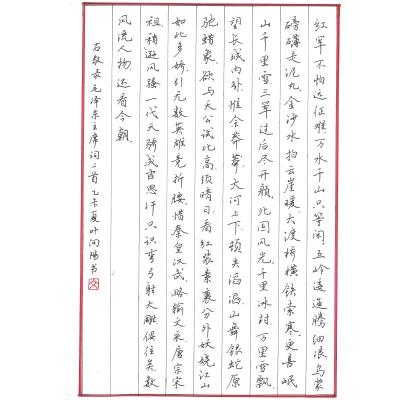 红军不怕远征难万水千山只等闲五岭逶迤腾细浪乌蒙
磅礴走泥丸金沙水拍云崖暖大渡桥横铁索寒更喜岷
山千里雪三军过后尽开颜北国风光千里冰封万里雪飘
望长城内外惟余莽莽大河上下顿失滔滔山舞银蛇原
驰蜡象欲与天公试比高须晴日看红装素裹分外妖娆江山
如此多娇引无数英雄竞折腰惜秦皇汉武略输文采唐宗宋
祖稍逊风骚一代天骄成吉思汗只识弯弓射大雕俱往矣数
风流人物还看今朝
右敬录毛泽东主席词二首乙未夏叶向阳书